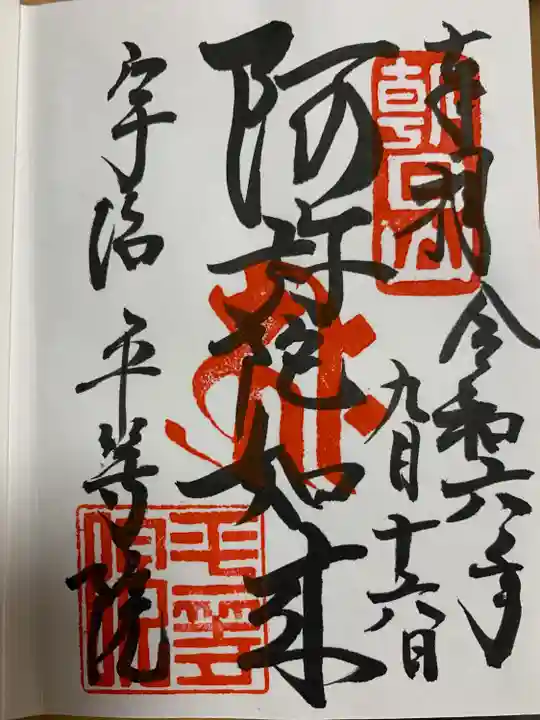 奉拝
朝日山
令和六年
九月十六日
阿弥陀如来
宇治 平等院
平等院